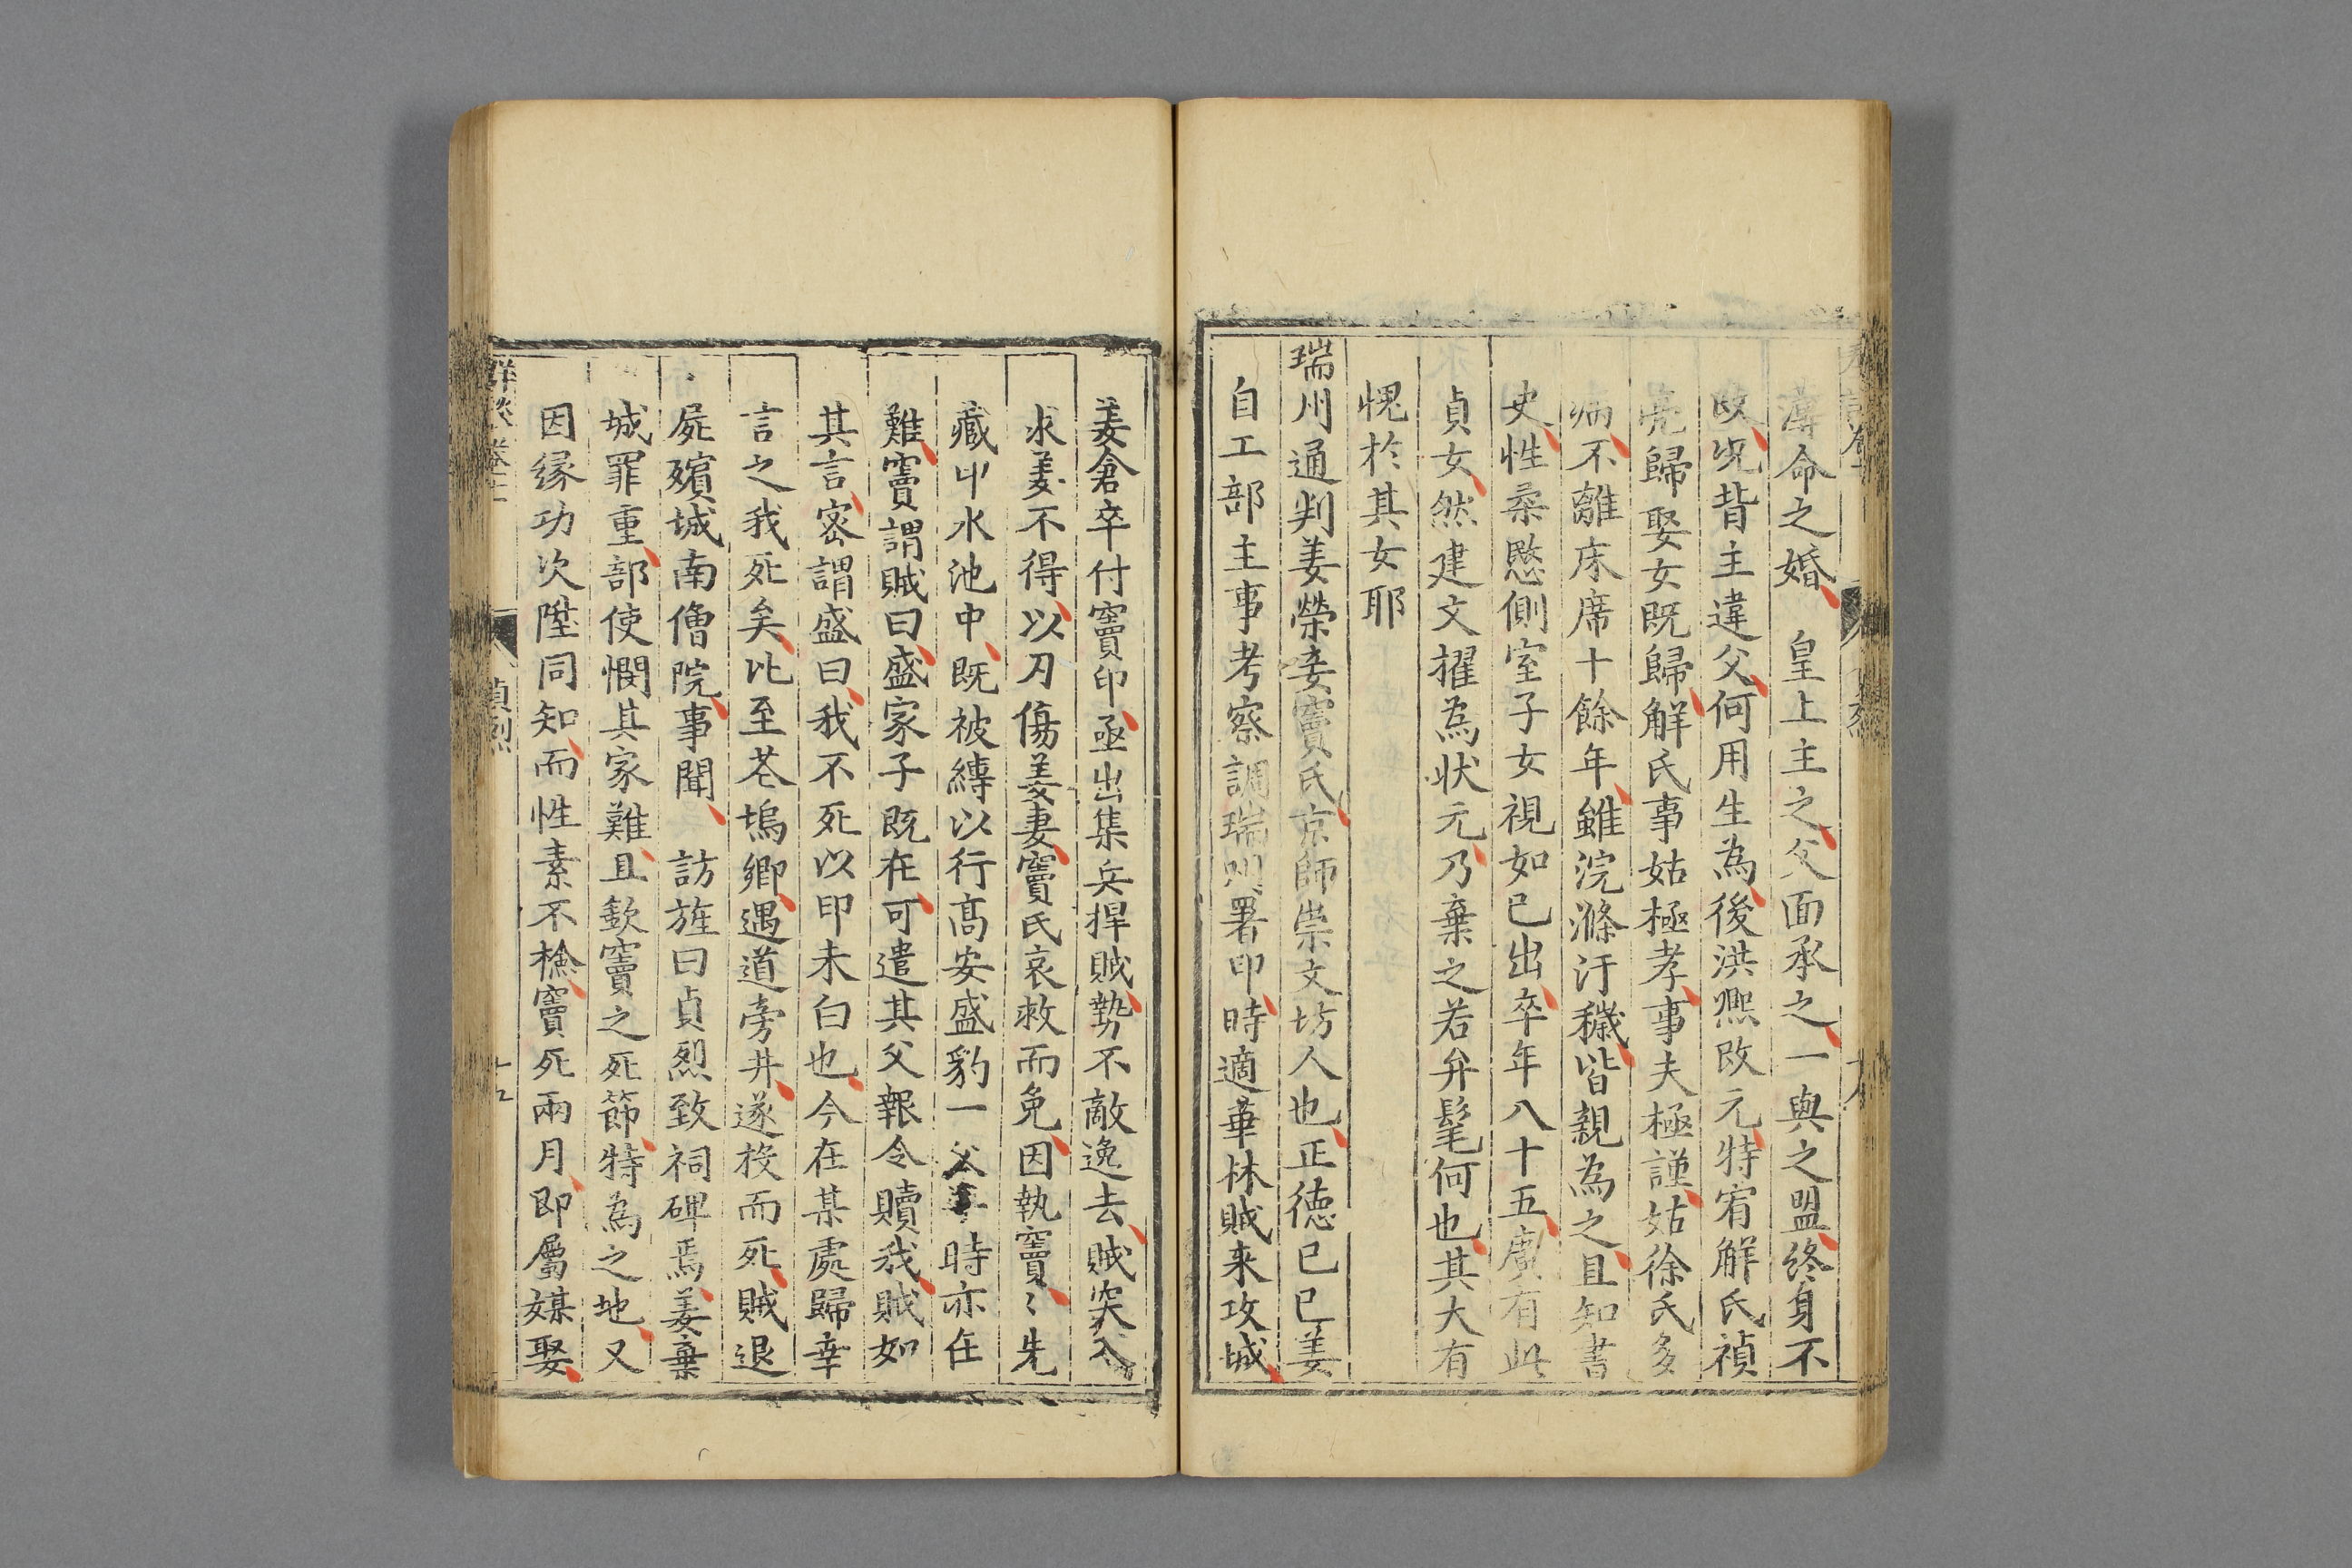 薄命之婚　皇上主之父面承之一與之盟終身不
改况背主違父何用生為後洪熈改元特宥觧氏禎
亮歸娶女既歸觧氏事姑極孝事夫極謹姑徐氏多
病不離床席十餘年雖浣滌汙穢皆親為之且知書
史性柔愍側室子女視如已出卒年八十五廣有此
貞女然建文擢為状元乃棄之若弁髦何也其大有
愧於其女耶
瑞州通判姜榮妾竇氏京師崇文坊人也正德已巳姜
自工部主事考察調瑞州署印時適華林賊来攻城
姜倉卒付竇印亟出集兵捍賊勢不敵逸去賊突入
求姜不得以刀傷姜妻竇氏哀救而免因執竇〻先
藏印水池中既被縛以行高安盛豹一父子時亦在
難竇謂賊曰盛家子既在可遣其父報令贖我賊如
其言密謂盛曰我不死以印未白也今在某處歸幸
言之我死矣比至茗塢鄉遇道旁井遂投而死賊退
屍殯城南僧院事聞　訪旌曰貞烈致祠碑焉姜棄
城罪重部使憫其家難且欽竇之死節特為之地又
因緣功次陞同知而性素不檢竇死兩月即屬媒娶
群談卷二
貞烈